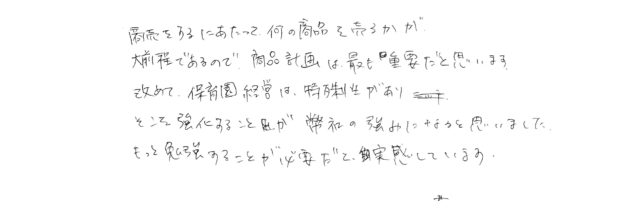 商売をするにあたって、何の商品を売るかが
大前程であるので、商品計画は、最も重要だと思います
改めて、保育園経営は、特殊性があり
そこを強化することが弊社の強みになると思いました。
もっと勉強することが必要だと、実感しています。